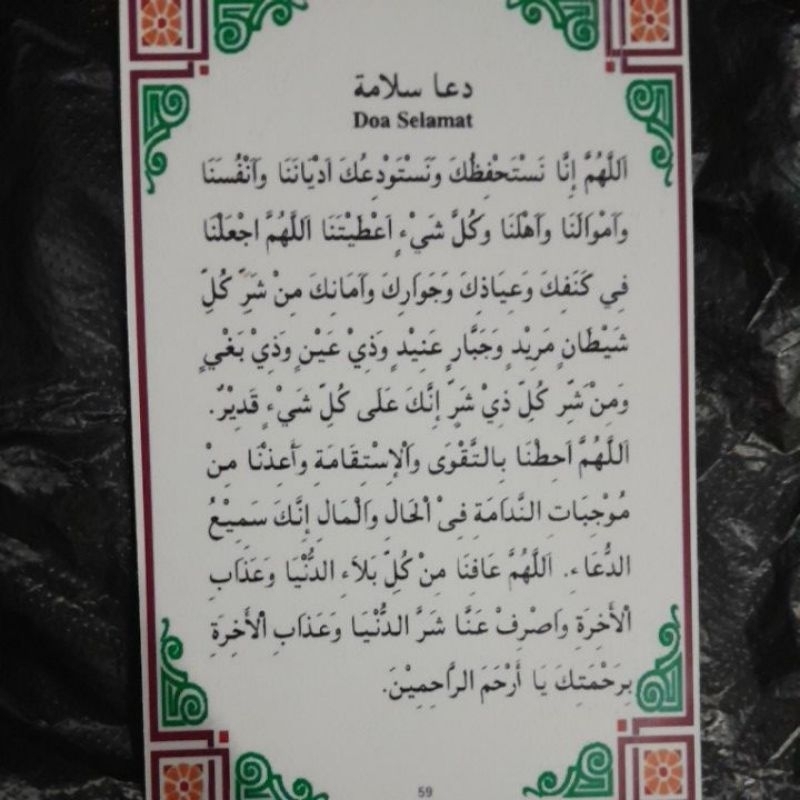 دعا سلامة
Doa Selamat
اَللَّهُمَّ إِنَّا نَسْتَحْفِظُكَ وَنَسْتَوْدِعُكَ اَدْيَانَنَا وَاَنْفُسَنَا
وَاَمْوَالَنَا وَاَهْلَنَا وَكُلَّ شَيْءٍ اَعْطَيْتَنَا اَللَّهُمَّ اجْعَلْنَا
فِي كَنَفِكَ وَعِيَاذِكَ وَجَوَارِكَ وَاَمَانِكَ مِنْ شَرِّ كُلِّ
شَيْطَانٍ مَرِيْدٍ وَجَبَّارٍ عَنِيْدٍ وَذِيْ عَيْنٍ وَذِيْ بَغْيٍ
وَمِنْ شَرِّ كُلِّ ذِيْ شَرٍّ إِنَّكَ عَلَى كُلِّ شَيْءٍ قَدِيْرٌ.
اَللَّهُمَّ اَحِطْنَا بِالتَّقْوَى وَالْإِسْتِقَامَةِ وَأَعِذْنَا مِنْ
مُوْجِبَاتِ النَّدَامَةِ فِىْ الْحَالِ وَالْمَالِ إِنَّكَ سَمِيْعُ
الدُّعَاءِ. اَللَّهُمَّ عَافِنَا مِنْ كُلِّ بَلَاءِ الدُّنْيَا وَعَذَابِ
الْأَخِرَةِ وَاصْرِفْ عَنَّا شَرَّ الدُّنْيَا وَعَذَابِ الْأَخِرَةِ
بِرَحْمَتِكَ يَا أَرْحَمَ الرَّاحِمِيْنَ.
59